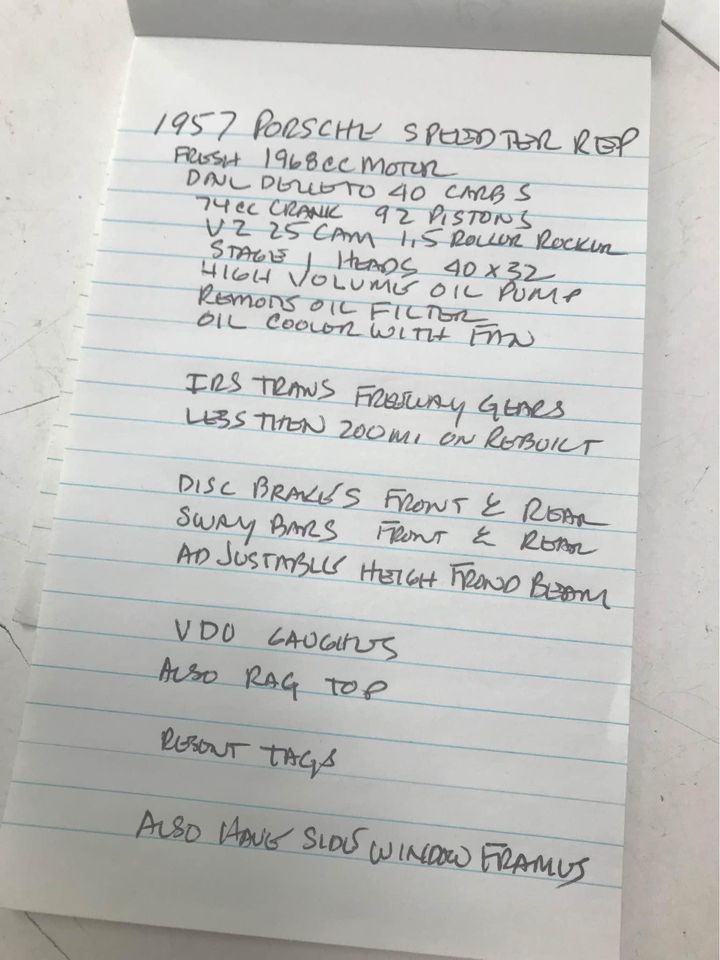 1957 PORSCHE SPEEDTER REP
FRESH 1968CC MOTOR
DAL DELLETO 40 CARBS
74CC CRANK 92 PISTONS
VZ 25 CAM 1.5 ROLLER ROCKER
STAGE 1 HEADS 40X32
HIGH VOLUME OIL PUMP
REMOTE OIL FILTER
OIL COOLER WITH FAN
IRS TRANS FREEWAY GEARS
LESS THEN 200MI ON REBUILT
DISC BRAKES FRONT & REAR
SWAY BARS FRONT & REAR
ADJUSTABLE HEIGH FROND BEAM
VDO GAUGHES
ALSO RAG TOP
RESENT TAGS
ALSO HAVE SIDE WINDOW FRAMES